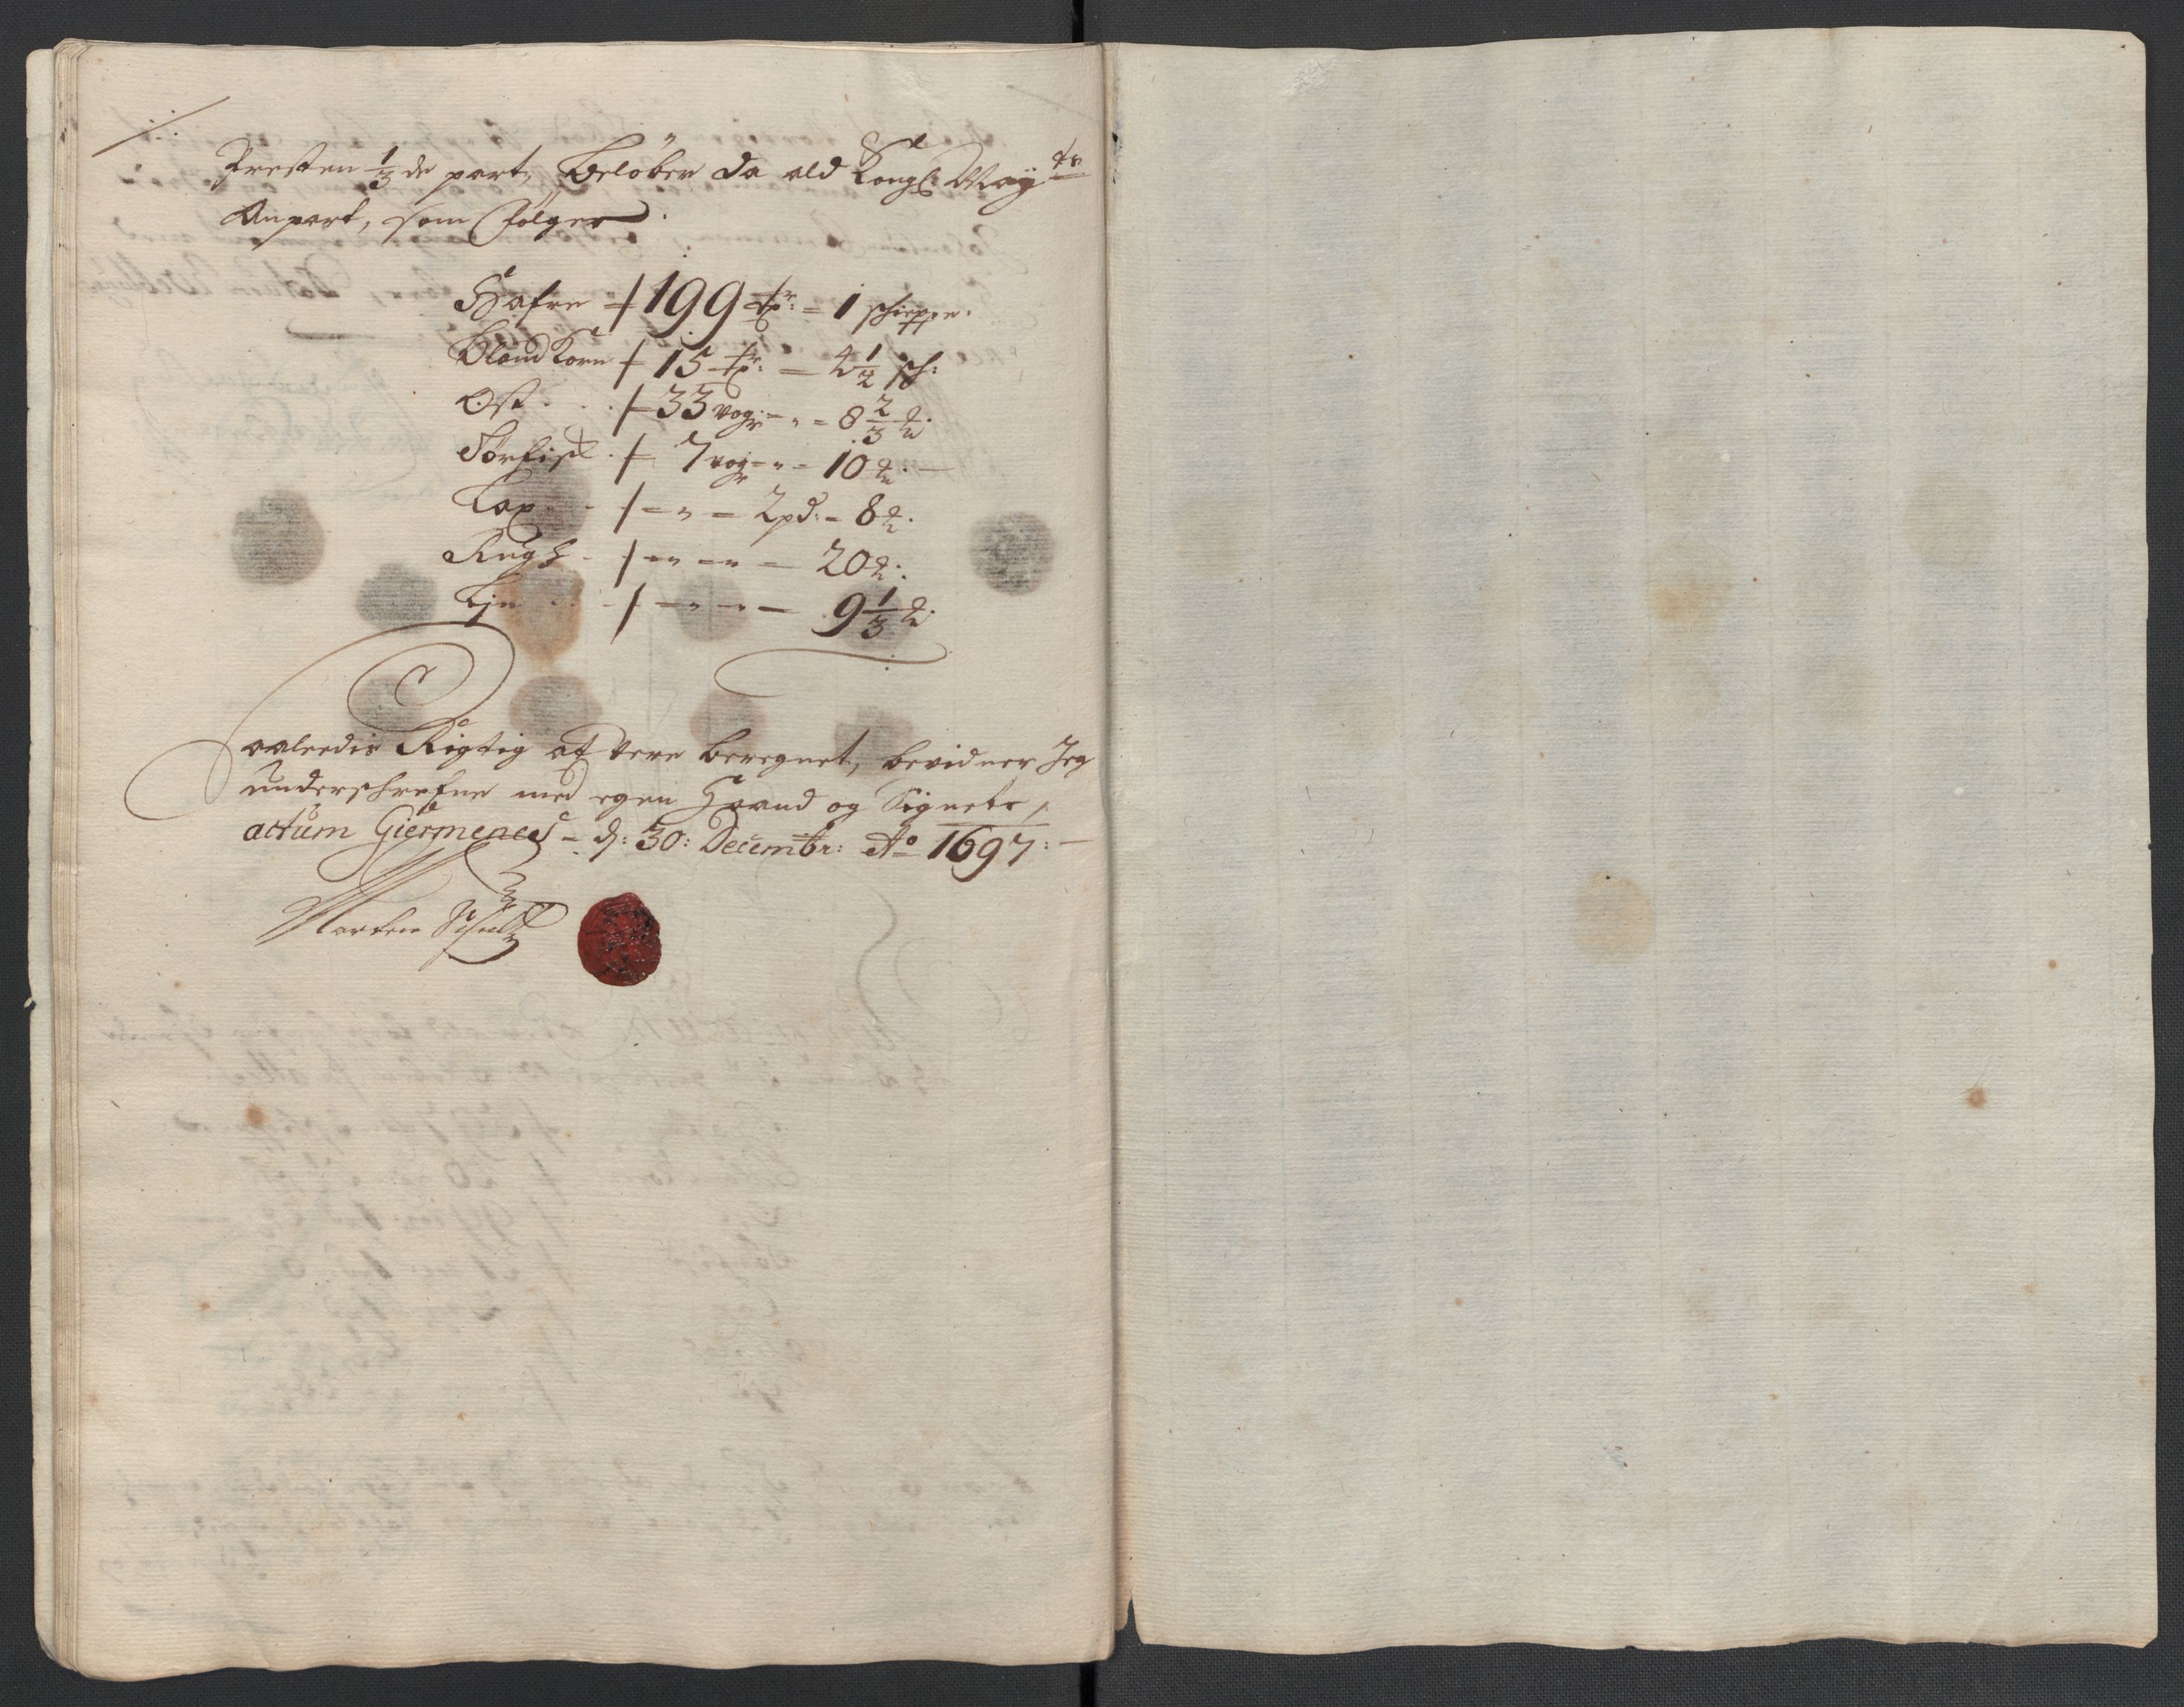 Presten 1/3 de part, Beløber da ald Kongl: May^ts
Anpart, som følger.
Hafre + 199 tr: = 1 schieppe.
Bland Korn + 15 tr: = 4 1/2 sch:
Ost . . . + 33 vog: - " = 8 2/3 lb.
Tørfisk . + 7 vog - " - 10 lb. —
Lax . . + - " - 2 pd: - 8 lb.
Rugh . + - " - " - 20 lb:
. . + - " - " - 9 1/3 lb.
Saaledis Rigtig at vere beregnet, bevidner Jeg
underschrefne med egen Haand og Signete,
actum Giermenes - d: 30: Decembr: Ao 1697: —
Morten Schultz